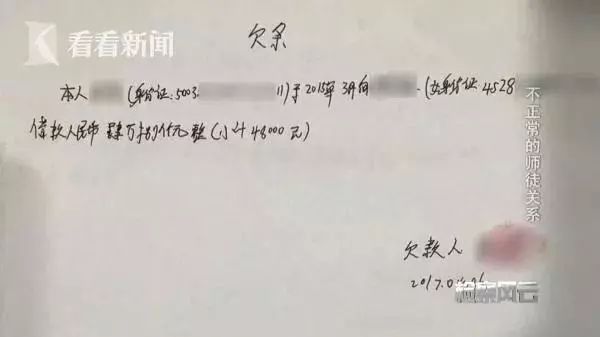 看看新闻
欠条
本人 (身份证:5003. 11)于2015年3月向 .(身份证4528
借款人民币肆万捌仟元整(小计48000元)
不正常的师徒关系
欠款人
2017.0
检察风云